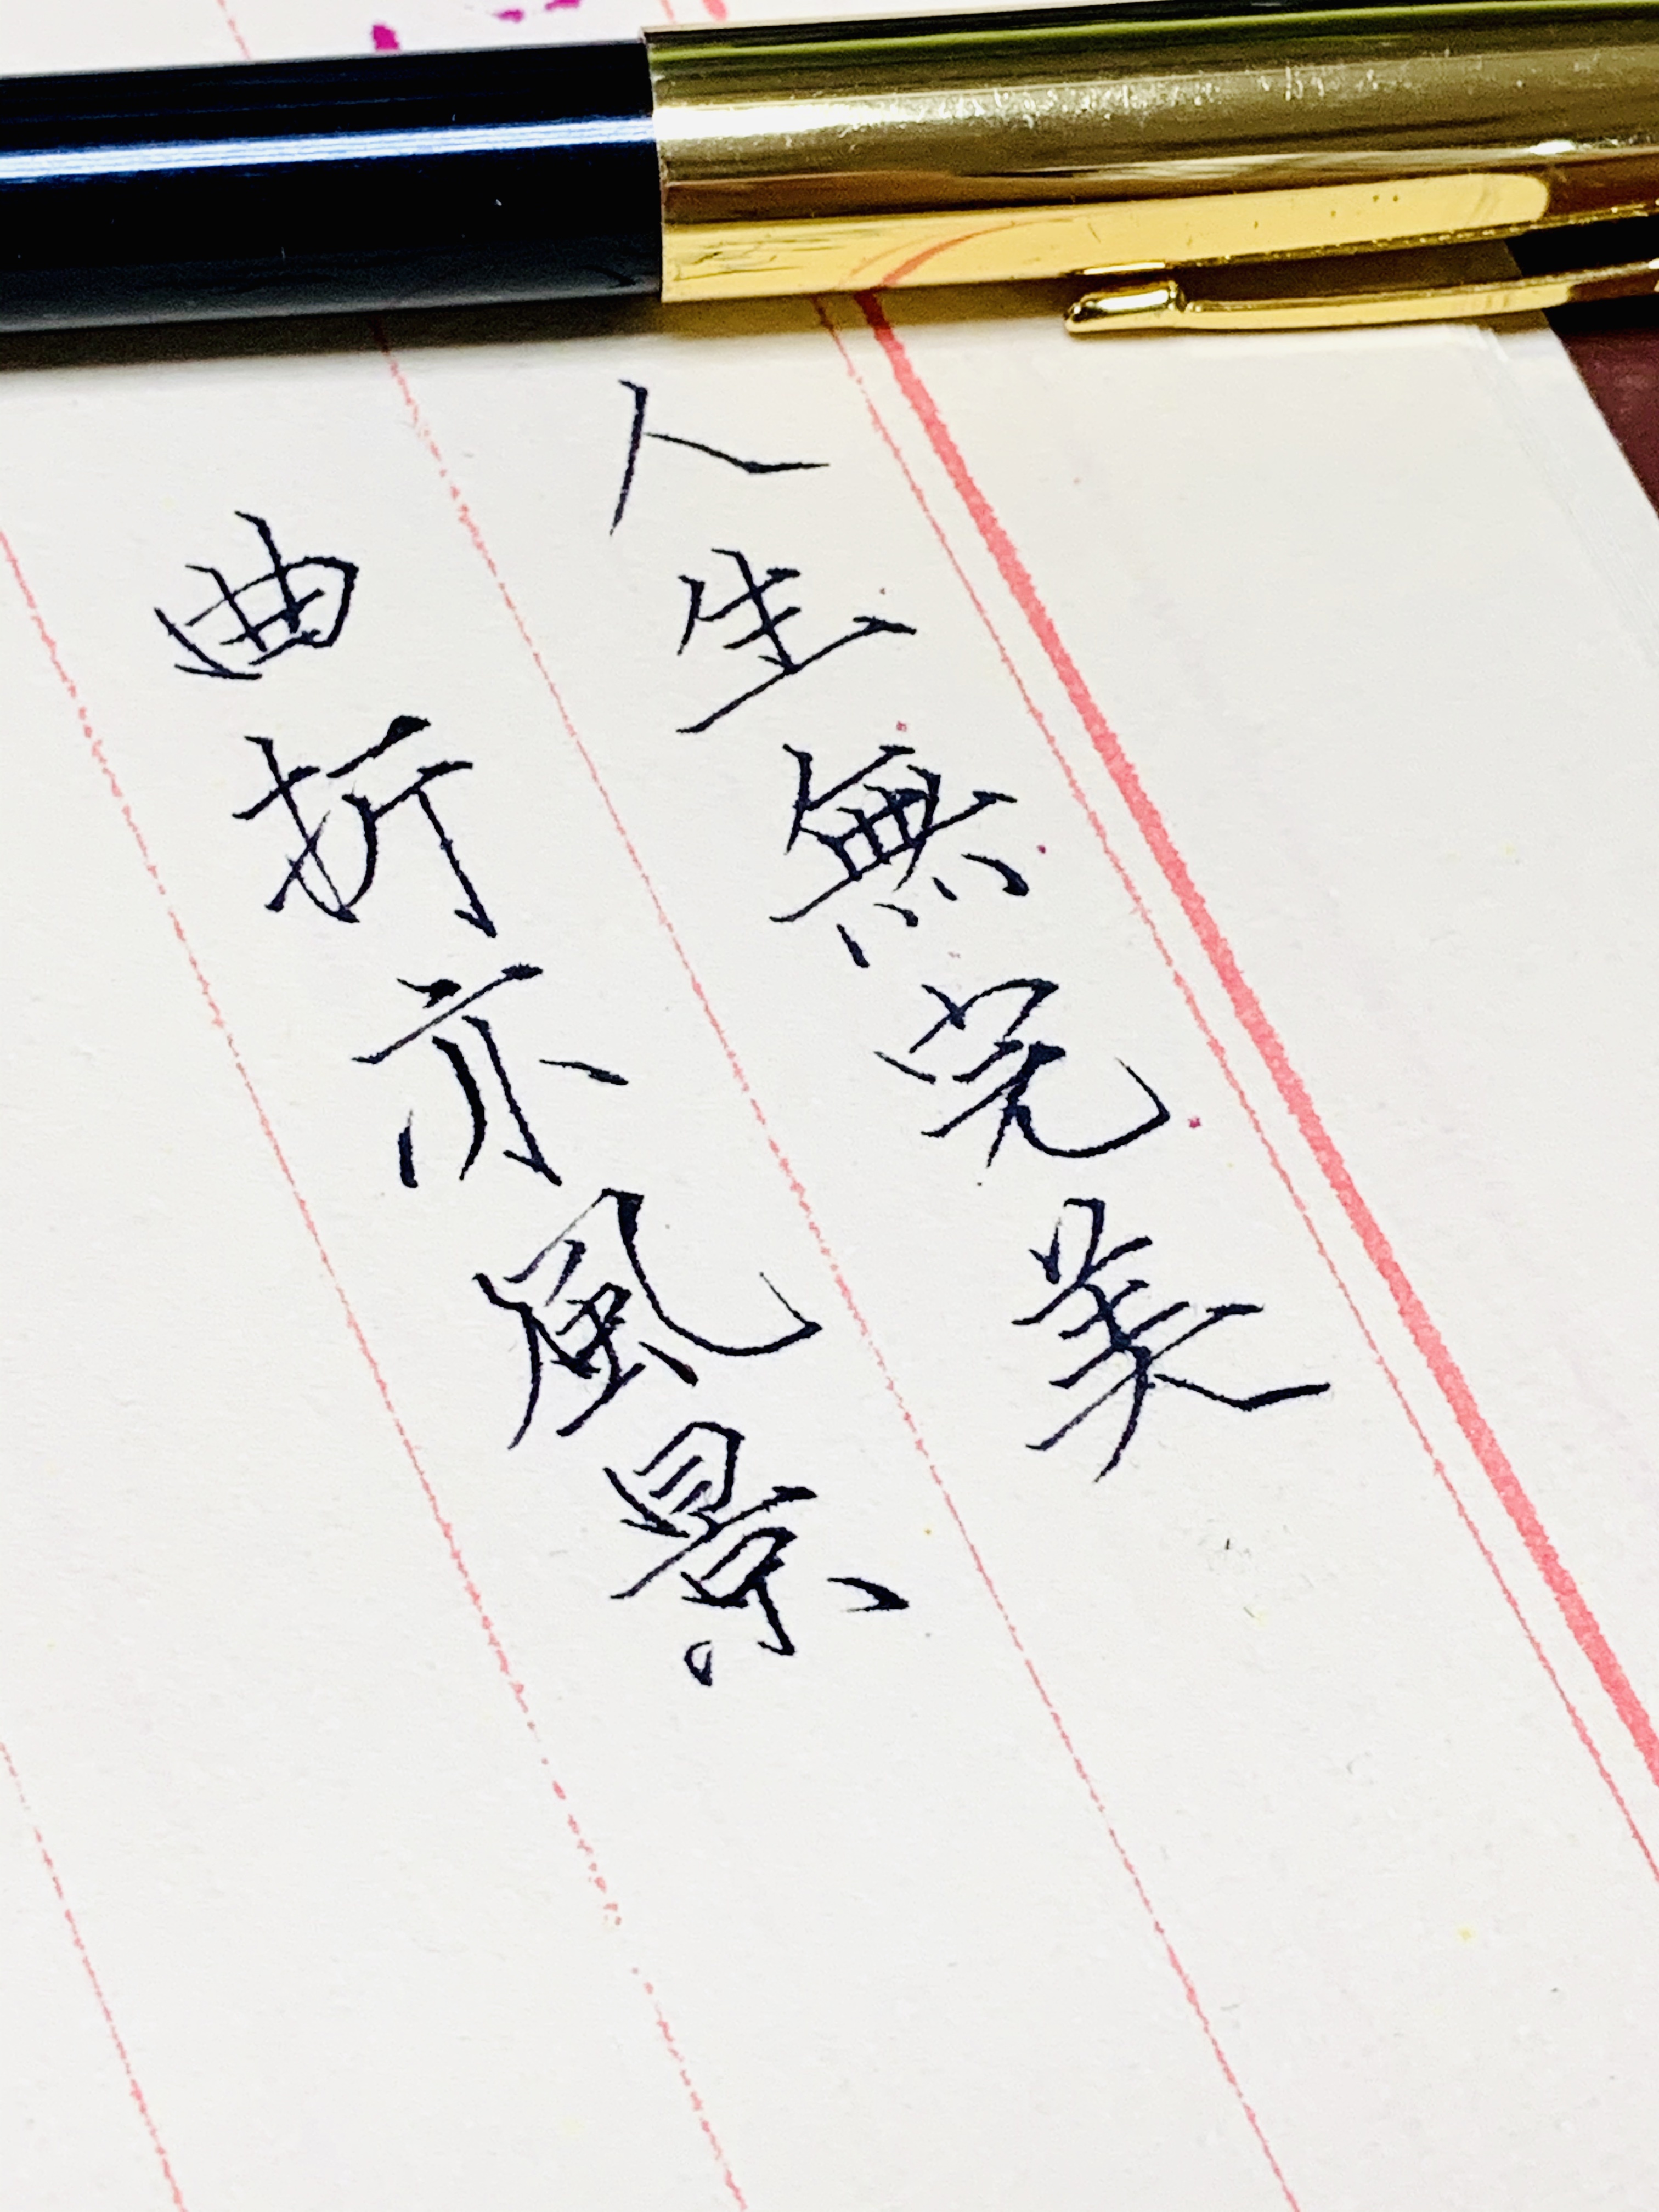 人生無完美
曲折亦風景